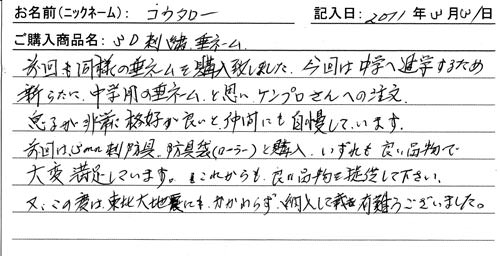 お名前(ニックネーム): コウタロー 記入日: 2011年3月31日
ご購入商品名: 3D刺繍垂ネーム
前回も同様の垂ネームを購入致しました。今回は中学へ進学するため
新らたに、中学用の垂ネームと思いケンプロさんへの注文。
息子が非常に格好が良いと、仲間にも自慢しています。
前回は、5mm刺防具、防具袋(ローラー)と購入、いずれも良い品物で
大変満足しています。これからも、良い品物を提供して下さい。
又、この度は、東北大地震にも、かかわらず、納入して戴き有難うございました。